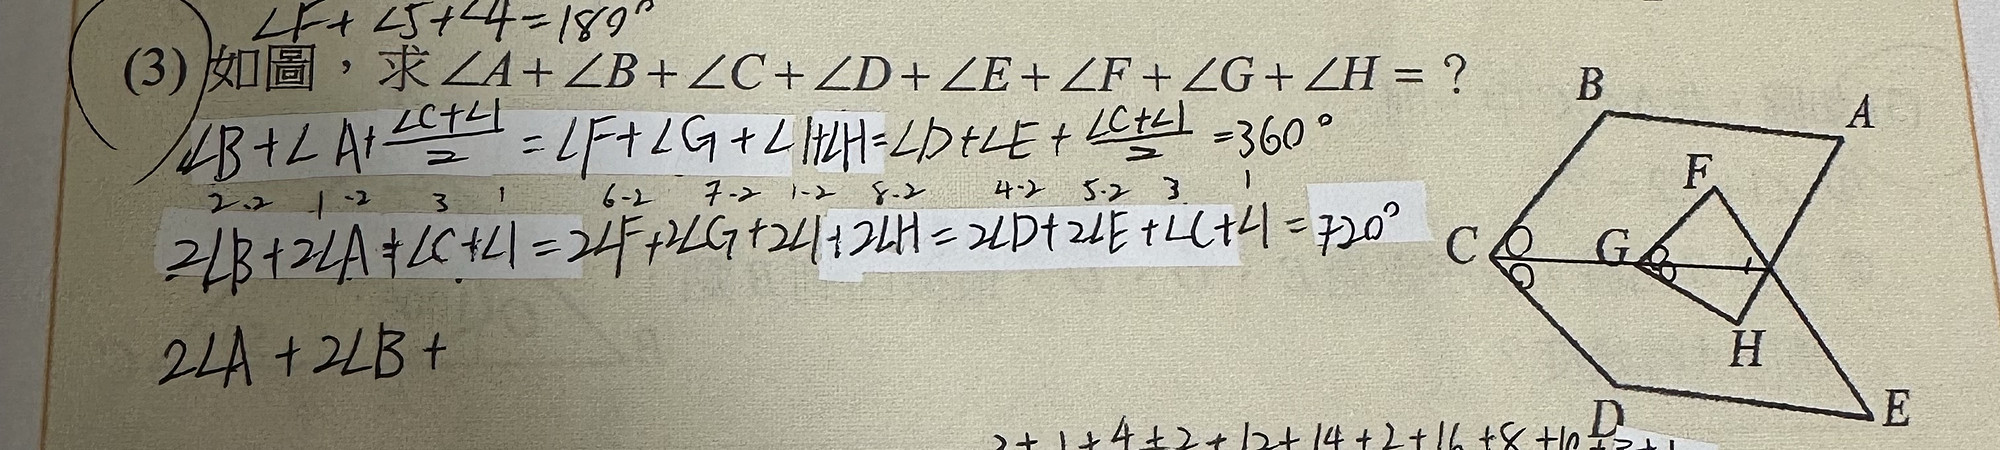 ∠F+∠5+∠4=180°
(3) 如圖，求∠A+∠B+∠C+∠D+∠E+∠F+∠G+∠H=？
∠B+∠A+(∠C+∠1)/2=∠F+∠G+∠1+∠H=∠D+∠E+(∠C+∠1)/2=360°
2-2 1-2 3 1 6-2 7-2 1-2 8-2 4-2 5-2 3 1
2∠B+2∠A+∠C+∠1=2∠F+2∠G+2∠1+2∠H=2∠D+2∠E+∠C+∠1=720°
2∠A+2∠B+
B
A
F
C
G
1
H
D
E
2+1+4+2+12+14+2+16+8+10+3+1